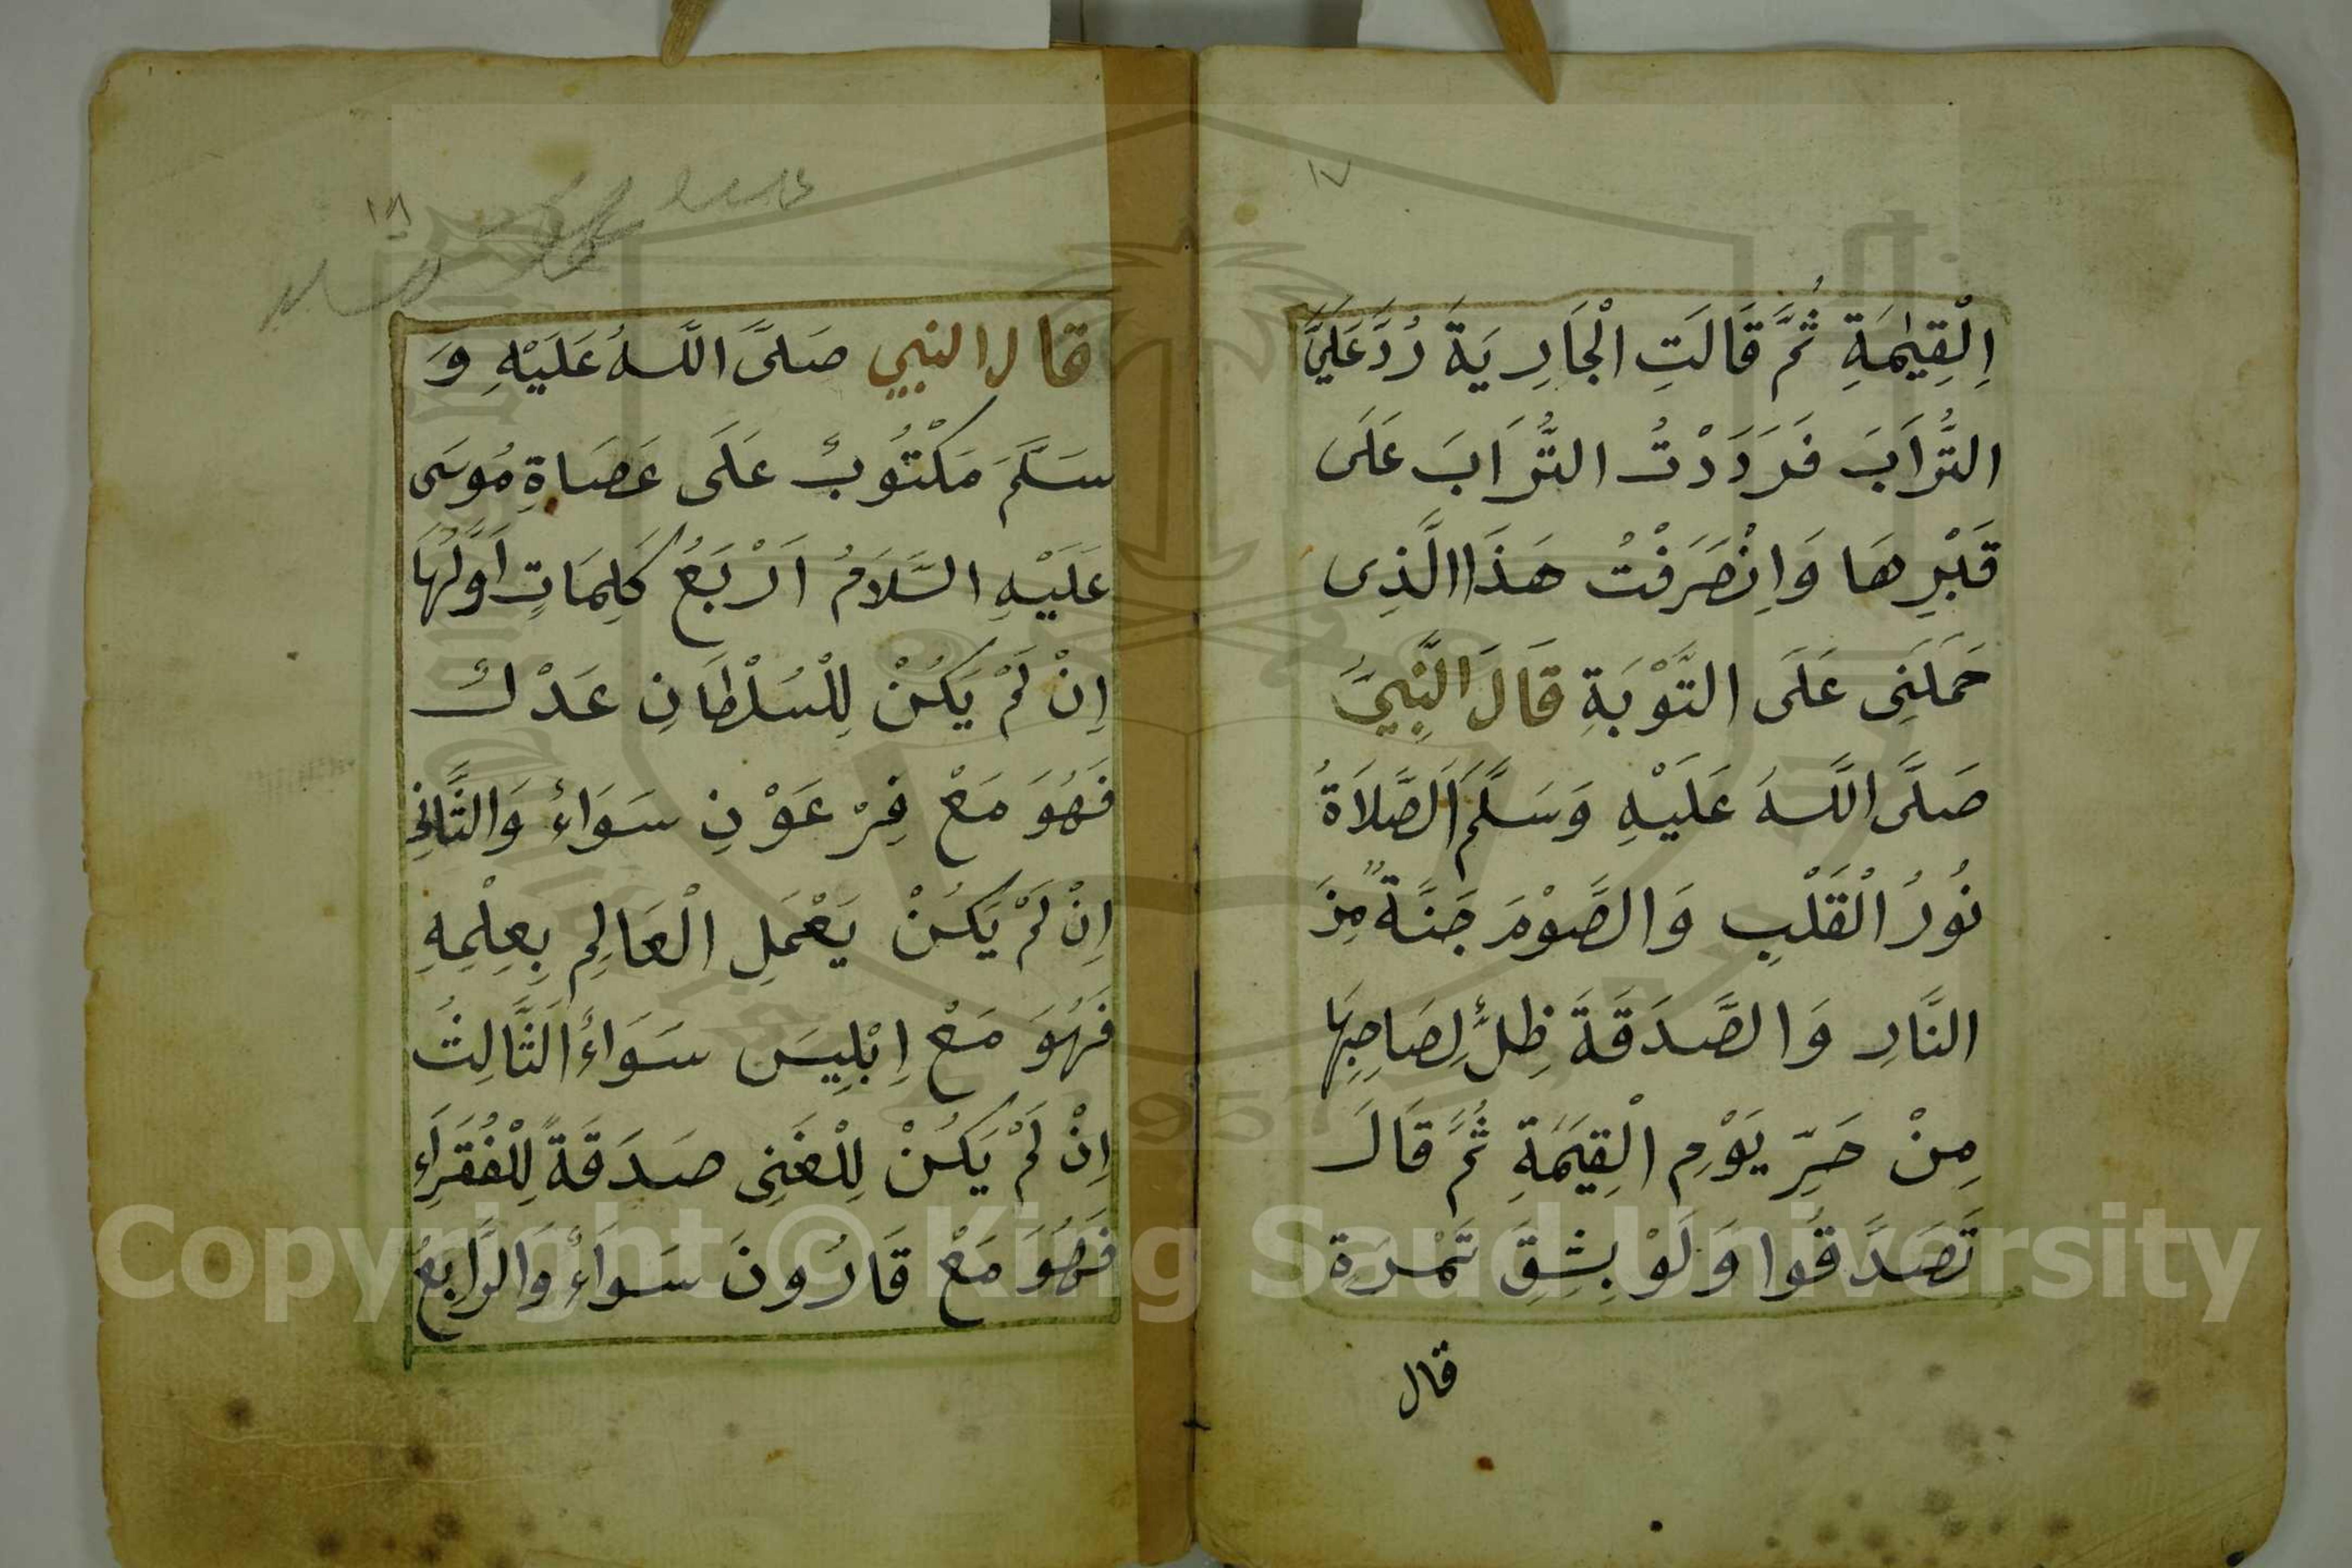 ١٧
اِلْقِيٰمَةِ ثُمَّ قَالَتِ الْجَارِيَةَ رُدَّ عَلَيَّ
التُّرَابَ فَرَدَدْتُ التُّرَابَ عَلَى
قَبْرِهَا وَاِنْصَرَفْتُ هَذَا الَّذِى
حَمَلَنِى عَلَى التَّوْبَةِ قَالَ النَّبِيُّ
صَلَّى اللَّهُ عَلَيْهِ وَسَلَّمَ اَلصَّلَاةُ
نُورُ الْقَلْبِ وَالصَّوْمَ جَنَّةٌ مِنَ
النَّارِ وَالصَّدَقَةَ ظِلٌّ لِصَاحِبِهَا
مِنْ حَرِّ يَوْمِ الْقِيَمَةِ ثُمَّ قَالَ
تَصَدَّقُوا وَلَوْ بِشِقِّ تَمْرَةٍ
قال
١٨
قال النبي صَلَّى اللَّهُ عَلَيْهِ وَ
سَلَّمَ مَكْتُوبٌ عَلَى عَصَاةِ مُوسَى
عَلَيْهِ السَّلَامُ اَرْبَعُ كَلِمَاتٍ اَوَّلُهَا
اِنْ لَمْ يَكُنْ لِلْسُلْطَانِ عَدْلٌ
فَهُوَ مَعْ فِرْعَوْنِ سَوَاءٌ وَالثَّانِى
اِنْ لَمْ يَكُنْ يَعْمَلِ الْعَالِمِ بِعِلْمِهِ
فَهُوَ مَعْ اِبْلِيسَ سَوَاءٌ اَلثَّالِثُ
اِنْ لَمْ يَكُنْ لِلْغَنِى صَدَقَةً لِلْفُقَرَاءِ
فَهُوَ مَعْ قَارُونَ سَوَاءٌ وَالرَّابِعُ
Copyright © King Saud University
1957